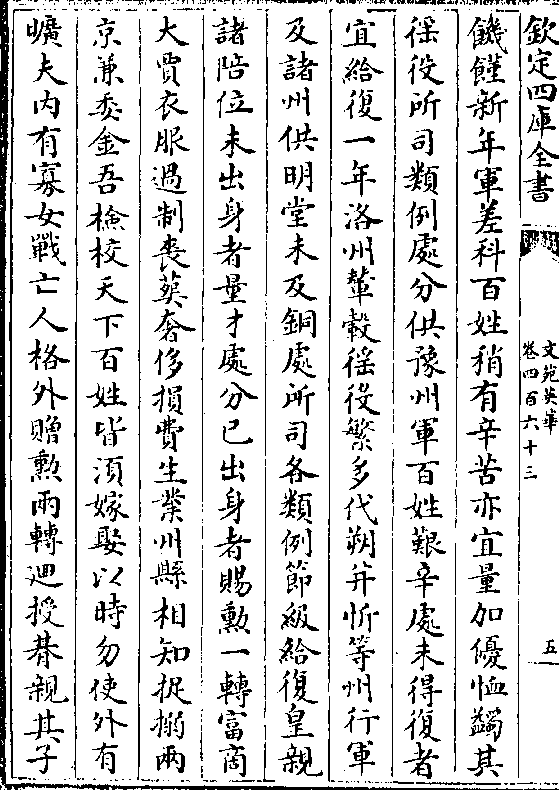 欽定四庫全書
文苑英華
卷四百六十三
五
饑饉新年軍差科百姓稍有辛苦亦宜量加優恤蠲其
徭役所司類例處分供豫州軍百姓艱辛處未得復者
宜給復一年洛州輦轂徭役繁多代朔并忻等州行軍
及諸州供明堂未及銅處所司各類例節級給復皇親
諸陪位未出身者量才處分已出身者賜勲一轉富商
大賈衣服過制喪葬奢侈損費生業州縣相知捉搦兩
京兼委金吾檢校天下百姓皆須嫁娶以時勿使外有
曠夫内有寡女戰亡人格外贈勲兩轉廻授朞親其子